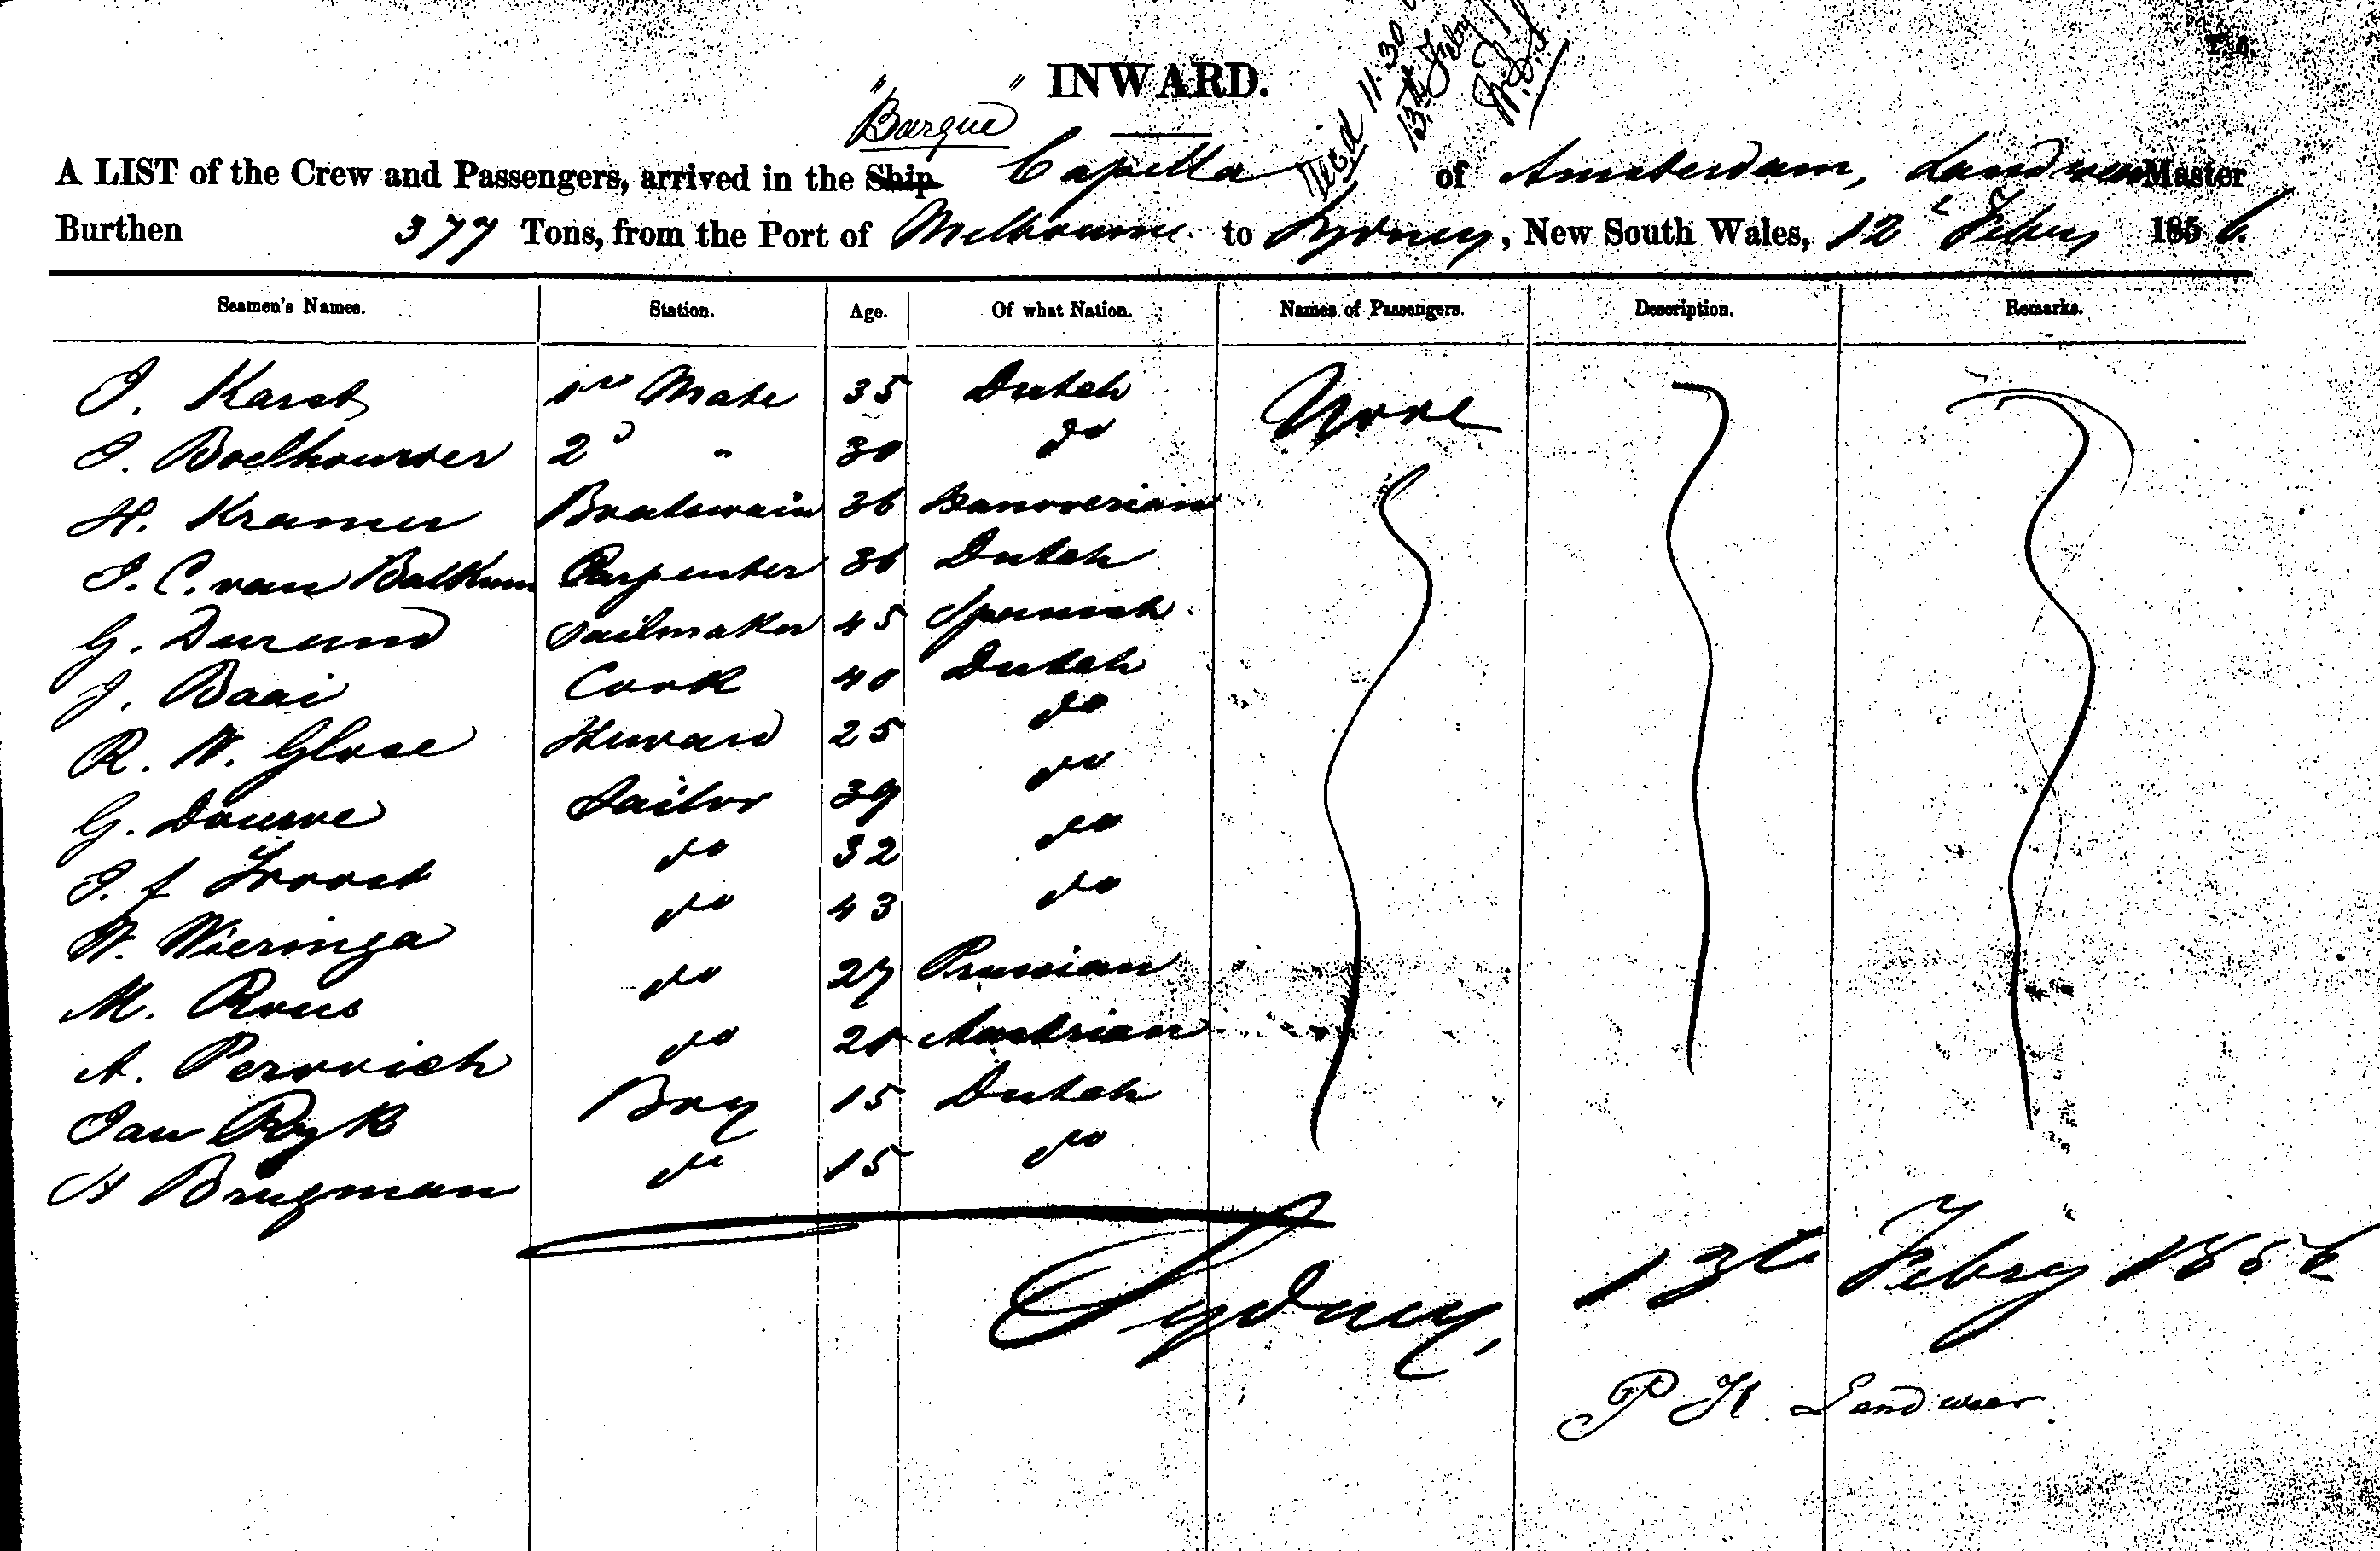 INWARD.
Recd 11.30
13th Feby
" Barque "
A LIST of the Crew and Passengers, arrived in the Ship Capella of Amsterdam, Landweer Master
Burthen 377 Tons, from the Port of Melbourne to Sydney, New South Wales, 12 Febry 1856.
Seamen's Names. Station. Age. Of what Nation. Names of Passengers. Description. Remarks.
J. Karst 1st Mate 35 Dutch None
J. Boelhouwer 2d " 30 do
H. Kramer Boatswain 36 Hanoverian
J. C. van Balkum Carpenter 36 Dutch
G. Durand Sailmaker 45 Spanish
J. Baai Cook 40 Dutch
R. W. Glose Steward 25 do
G. Douwe Sailor 39 do
J. f Troost do 32 do
W. Wieringa do 43 do
M. Rous do 27 Prussian
A. Perovich do 20 Austrian
Jan Ryk Boy 15 Dutch
H Brugman do 15 do
Sydney, 13th Febry 1856
P H. Landweer.